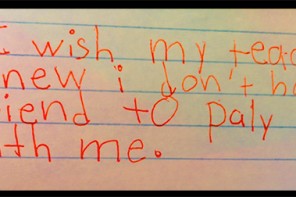 I wish my teac
new i don't ha
iend to paly
ith me.